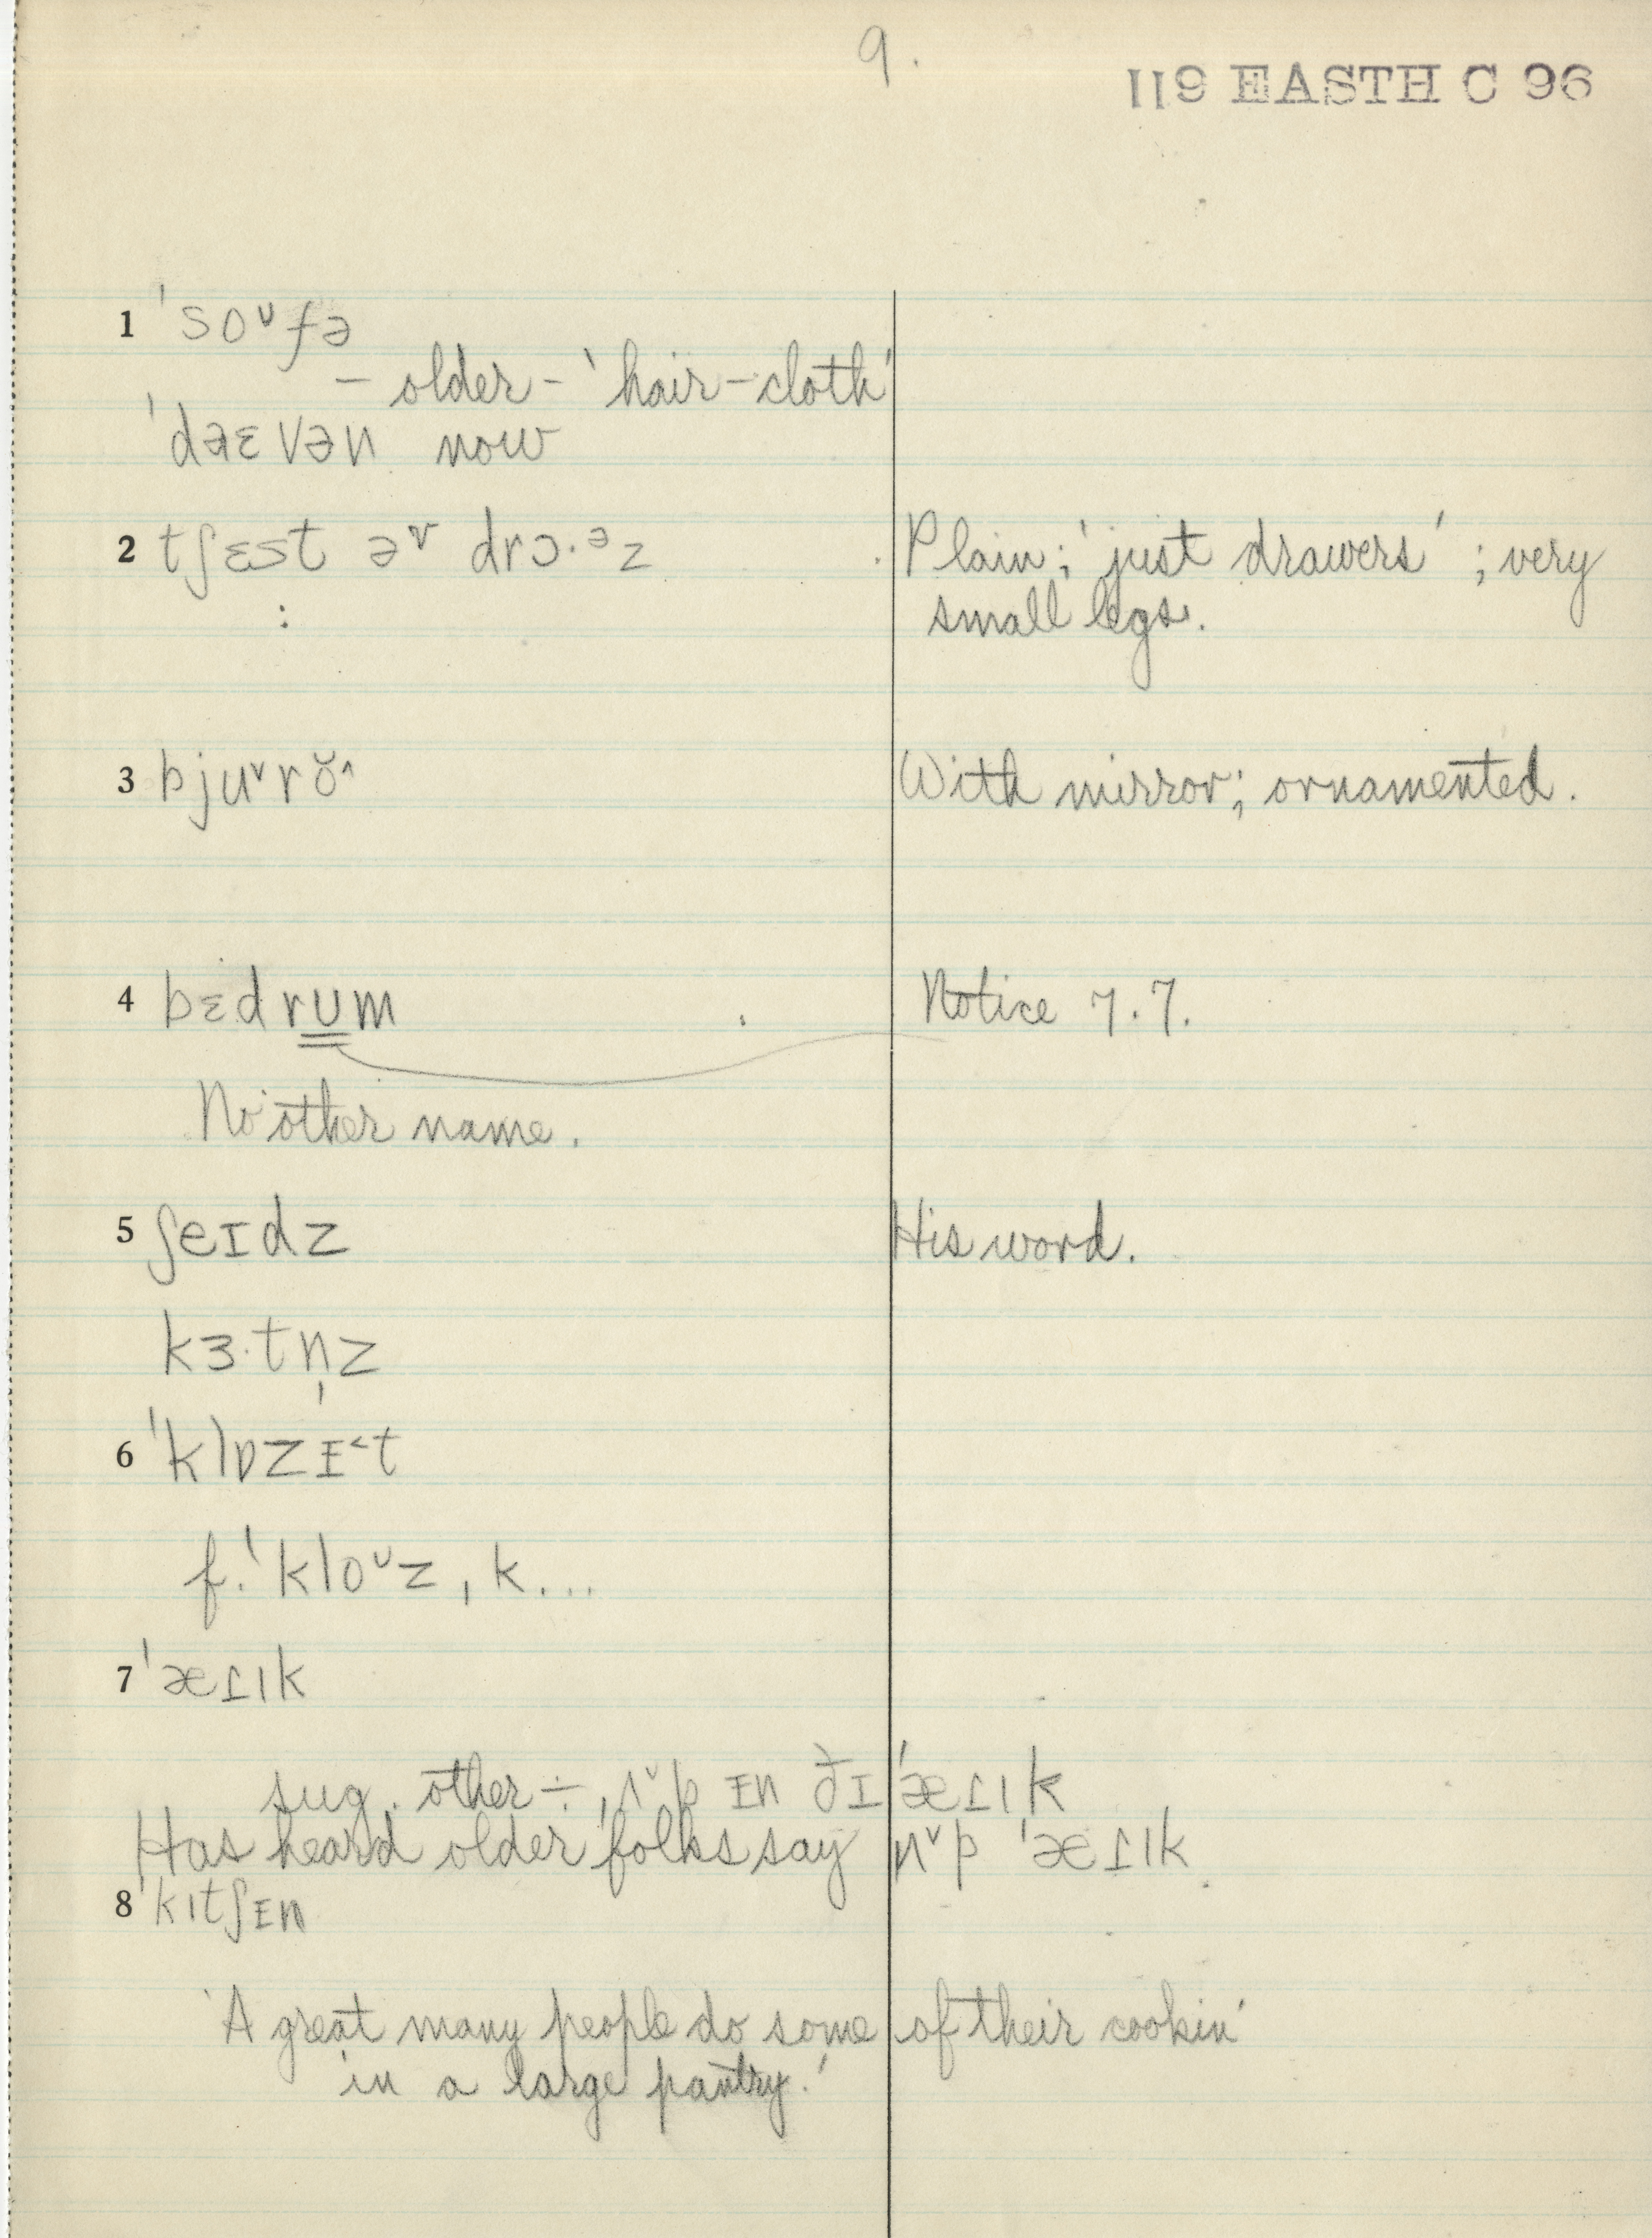 9.
119 EASTH C 96
1 ˈsoᴜfə
– older – 'hair-cloth'
ˈdəɛvən now
2 tʃɛst əᵛ drɔ·ᵊz Plain; 'just drawers'; very
: small legs.
3 bjuˇrŏ^ With mirror; ornamented.
4 bɛdrUm Notice 7.7.
No other name.
5 ʃeɪdz His word.
kɜ·tn̩z
6 ˈklɒzɪ˂t
f. ˈkloᴜz, k...
7 ˈæɾɪk
sug. other ÷ ʌˇp ɪn ðɪ ˈæɾɪk
Has heard older folks say ʌˇp ˈæɾɪk.
8 ˈkɪtʃɪn
'A great many people do some of their cookin'
in a large pantry.'